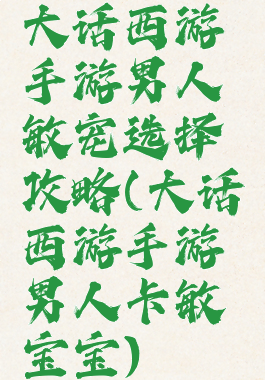 大话西游
手游男人
敏宠选择
攻略(大话
西游手游
男人卡敏
宝宝)